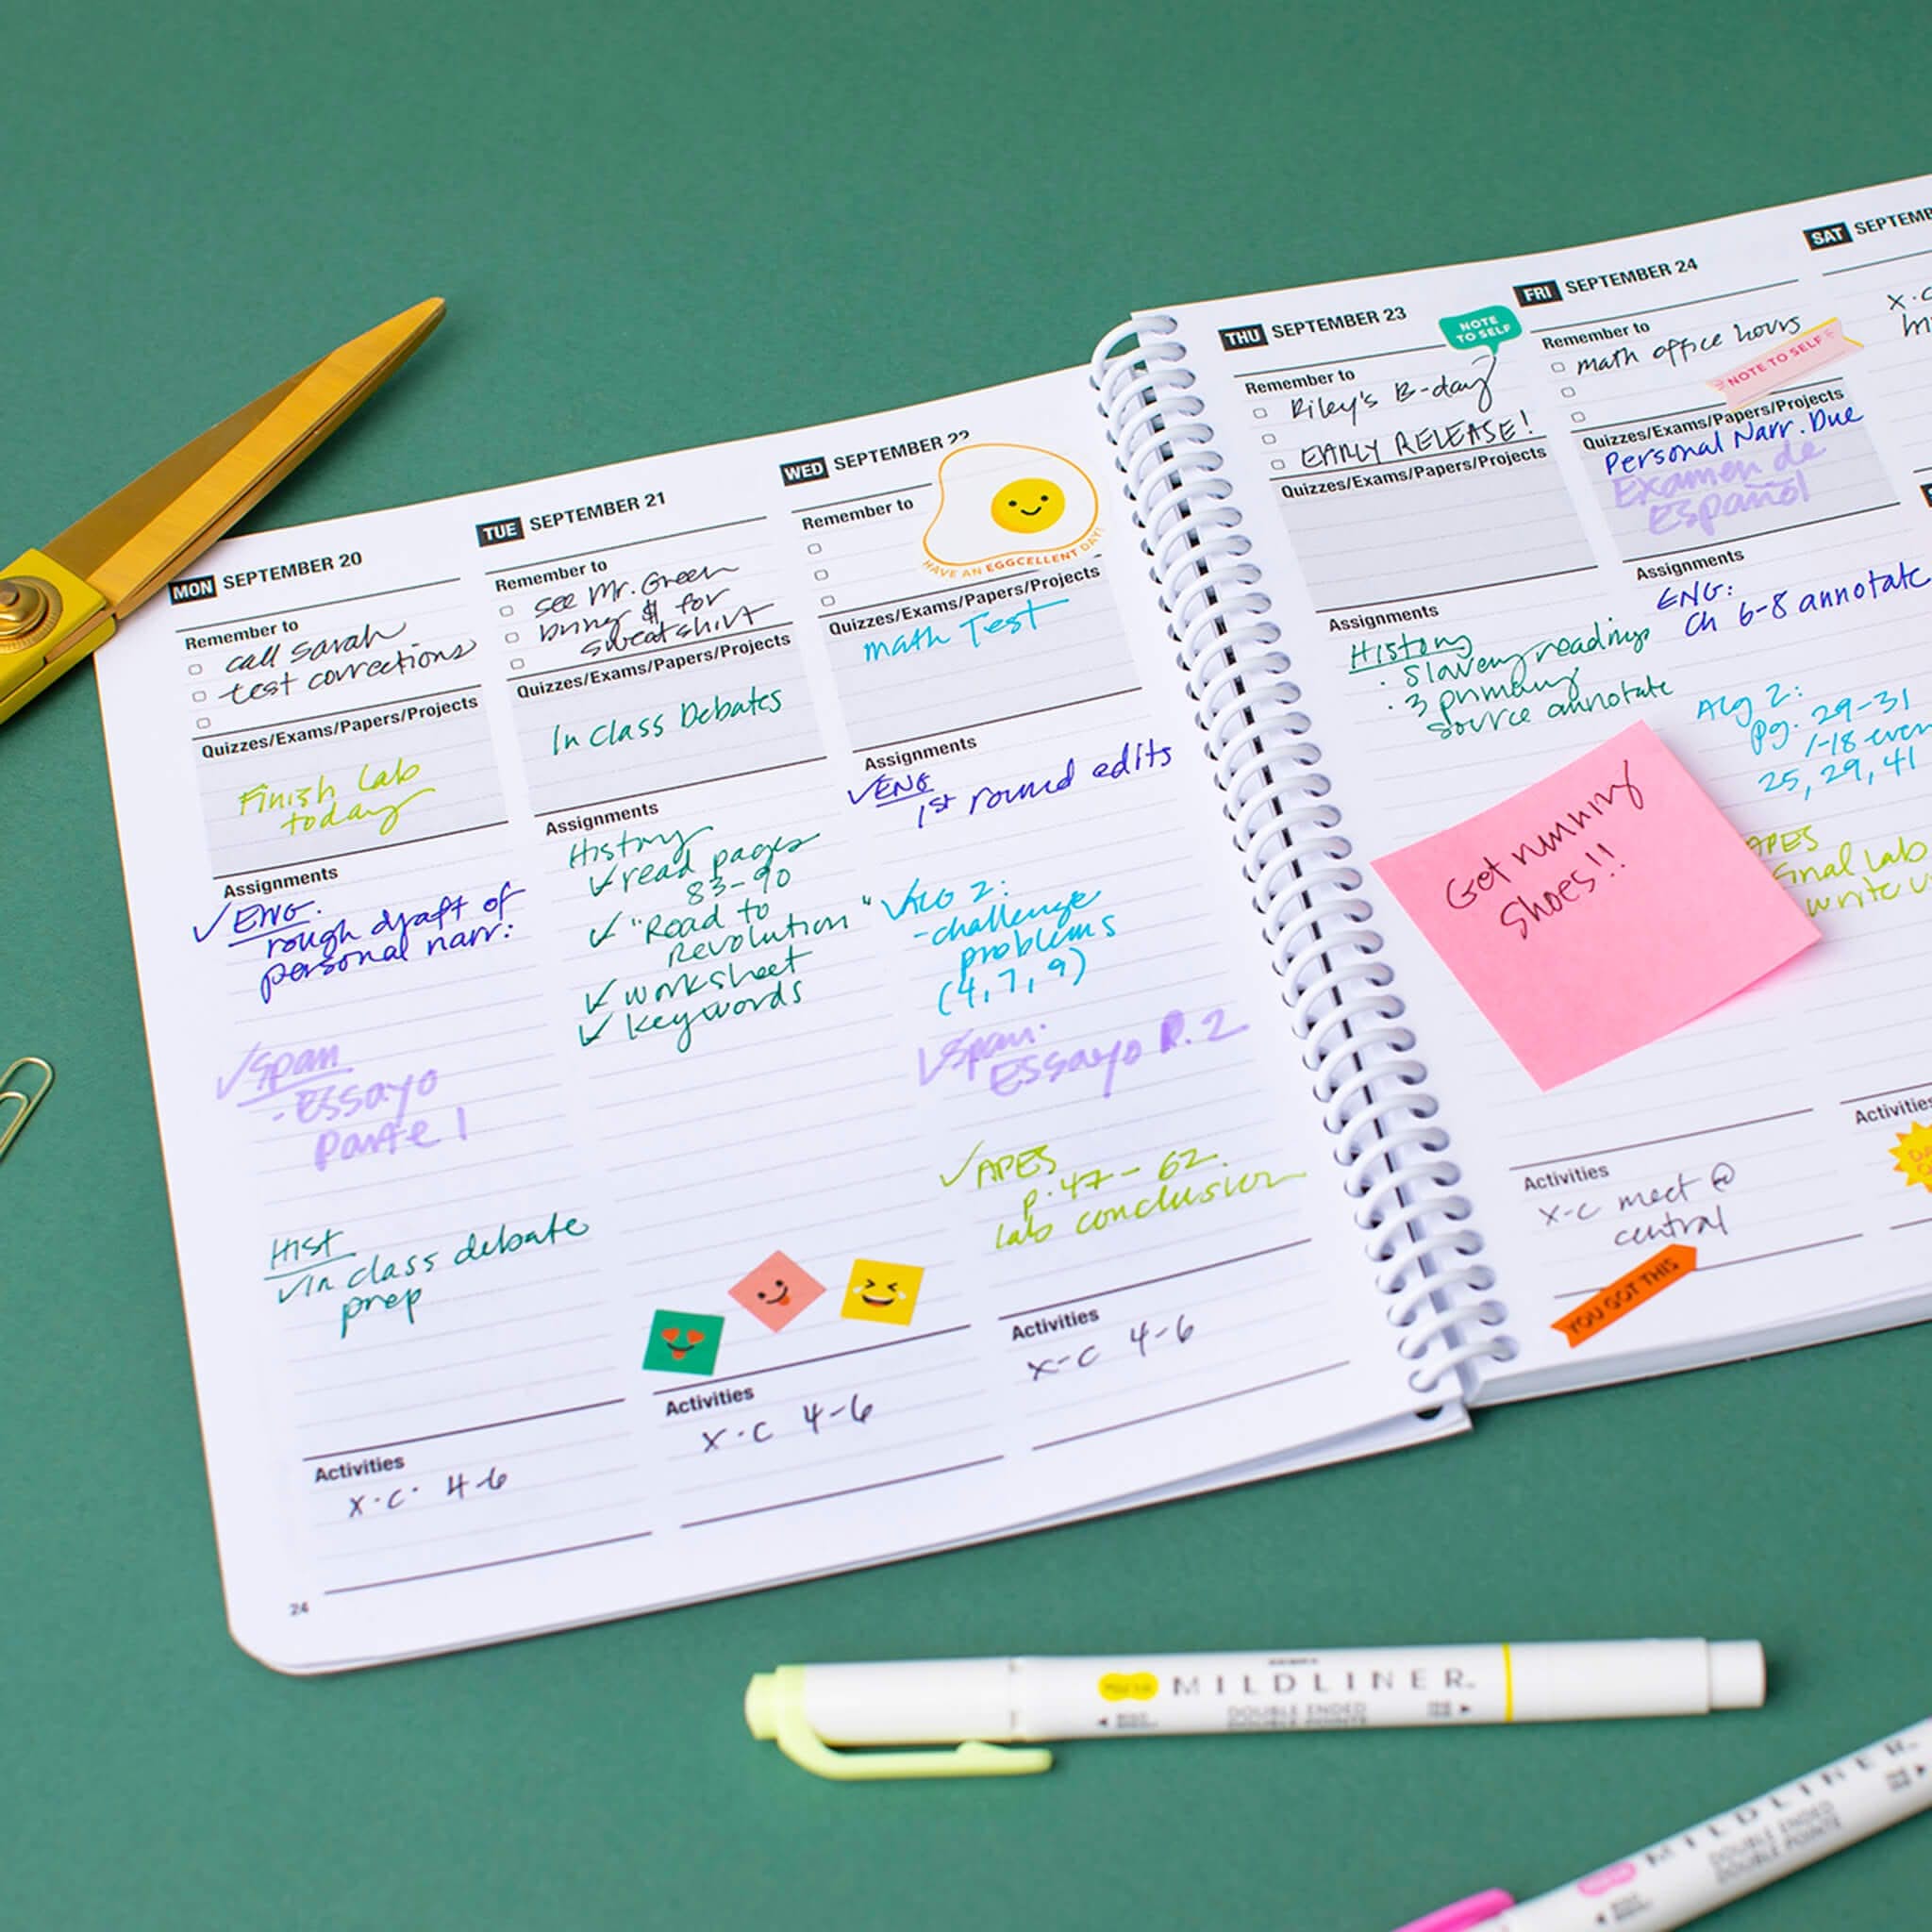 MON SEPTEMBER 20
Remember to
call sarah
test corrections
Quizzes/Exams/Papers/Projects
Finish Lab
today
Assignments
✓ENG.
rough draft of
personal narr.
✓Span
- Essayo
Parte 1
Hist
✓in class debate
prep
Activities
X.C. 4-6
24
TUE SEPTEMBER 21
Remember to
see Mr. Green
bring $ for
sweatshirt
Quizzes/Exams/Papers/Projects
In Class Debates
Assignments
History
✓read pages
83-90
✓ "Road to
Revolution"
✓ worksheet
✓ keywords
Activities
X.C 4-6
WED SEPTEMBER 22
Remember to
HAVE AN EGGCELLENT DAY!
Quizzes/Exams/Papers/Projects
math Test
Assignments
✓ENG
1st round edits
✓ALG 2:
-challenge
problems
(4, 7, 9)
✓Span:
Essayo P. 2
✓APES
p. 47-62
lab conclusion
Activities
X-C 4-6
THU SEPTEMBER 23
NOTE
TO SELF
Remember to
Riley's B-day
EARLY RELEASE!
Quizzes/Exams/Papers/Projects
Assignments
History
· Slavery readings
· 3 primary
source annotate
Get running
Shoes!!
Activities
X-C meet @
central
YOU GOT THIS
FRI SEPTEMBER 24
Remember to
math office hours
NOTE TO SELF
Quizzes/Exams/Papers/Projects
Personal Narr. Due
Examen de
Español
Assignments
ENG:
Ch 6-8 annotate
Alg 2:
pg. 29-31
1-18 even
25, 29, 41
APES
Final Lab
write
Activities
SAT
MILDLINER
DOUBLE ENDED
MILDLINER
DOUBLE ENDED